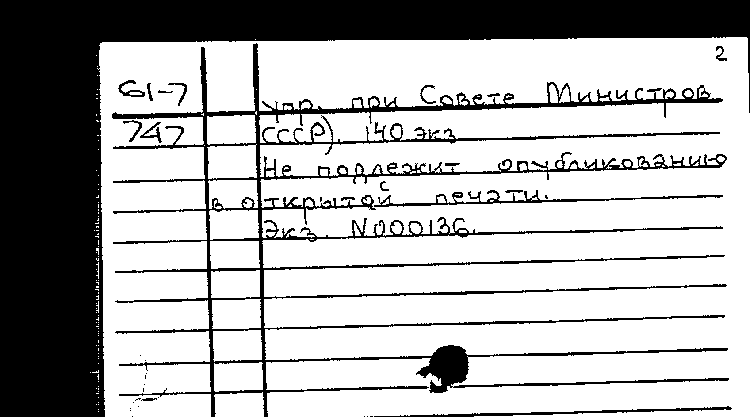 2
61-7 упр. при Совете Министров
747 СССР). 140 экз
Не подлежит опубликованию
в открытой печати.
Экз. N000136.